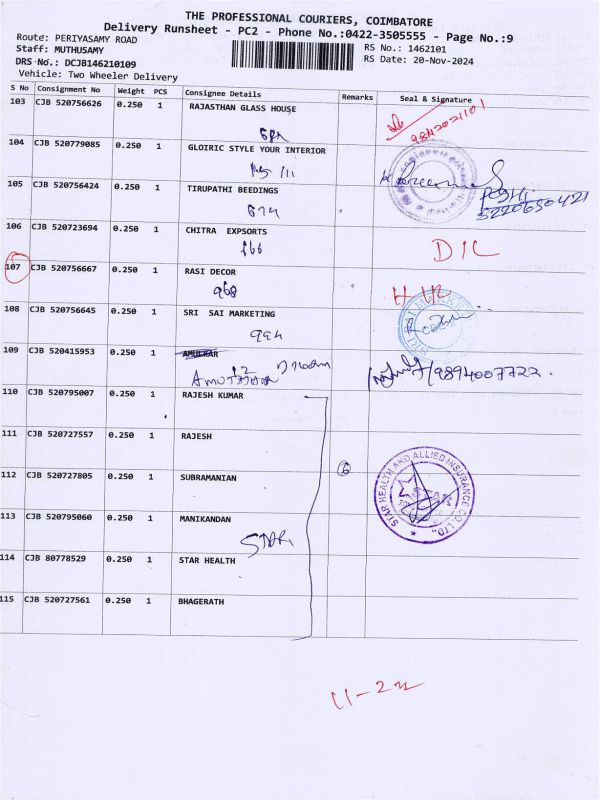 THE PROFESSIONAL COURIERS, COIMBATORE
Delivery Runsheet - PC2 - Phone No.:0422-3505555 - Page No.:9
Route: PERIYASAMY ROAD
RS No.: 1462101
Staff: MUTHUSAMY
RS Date: 20-Nov-2024
DRS No.: DCJB146210109
Vehicle: Two Wheeler Delivery
S No Consignment No Weight PCS Consignee Details Remarks Seal & Signature
103 CJB 520756626 0.250 1 RAJASTHAN GLASS HOUSE
9842021101
104 CJB 520779085 0.250 1 GLOIRIC STYLE YOUR INTERIOR
105 CJB 520756424 0.250 1 TIRUPATHI BEEDINGS
614
106 CJB 520723694 0.250 1 CHITRA EXPSORTS
D/L
107 CJB 520756667 0.250 1 RASI DECOR
968
108 CJB 520756645 0.250 1 SRI SAI MARKETING
994
109 CJB 520415953 0.250 1 AMULKAR
9894007722
110 CJB 520795007 0.250 1 RAJESH KUMAR
111 CJB 520727557 0.250 1 RAJESH
112 CJB 520727805 0.250 1 SUBRAMANIAN
6
STAR HEALTH AND ALLIED INSURANCE CO. LTD.,
113 CJB 520795060 0.250 1 MANIKANDAN
STAR
114 CJB 80778529 0.250 1 STAR HEALTH
115 CJB 520727561 0.250 1 BHAGERATH